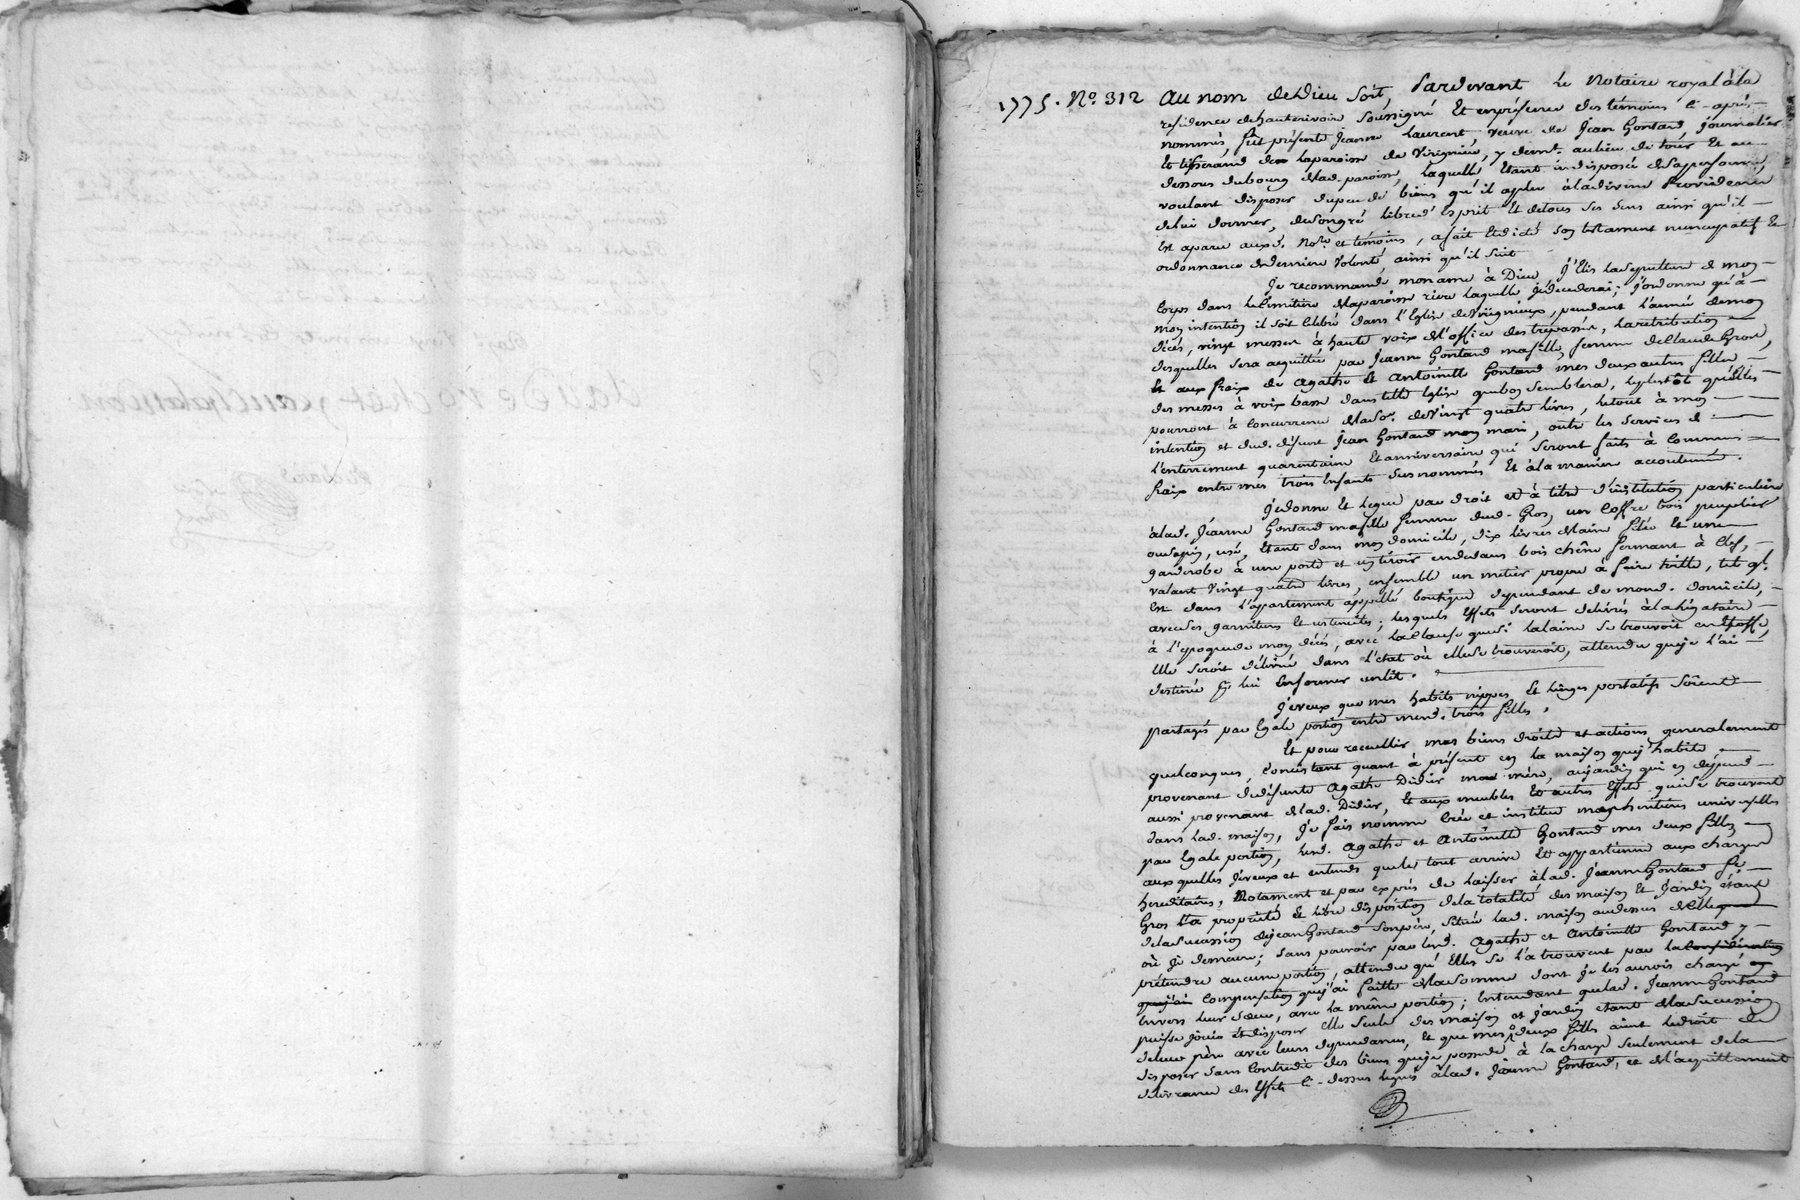 1775. No. 312 Au nom de Dieu soit, Pardevant le Notaire royal à la
residence de hauterivoire soussigné et en présence des témoins ci-après
nommés, fut présente Jeanne Laurent, veuve de Jean Gontard, journalier
et tisserand de la paroisse de Virignieu, y demt. au lieu de tour et au
dessous du bourg de lad. paroisse, laquelle étant indisposée de sa personne,
voulant disposer du peu de biens qu'il a plu à la divine Providence
de lui donner, de son gré libre d'esprit et de tous ses sens ainsi qu'il
est aparu auxd. Nore et témoins, a fait et dicté son testament nuncupatif et
ordonnance de derniere volonté, ainsi qu'il suit
Je recommande mon ame à Dieu, j'élis la sepulture de mon
corps dans le cimitière de la paroisse rière laquelle je décederai; j'ordonne qu'à
mon intention il soit célébré dans l'Eglise de Virignieux, pendant l'année de mon
décès, vingt messes à haute voix de l'office des trépassés, la retribution
desquelles sera acquittée par Jeanne Gontard ma fille, femme de Claude Gros,
et aux fraix de Agathe et Antoinette Gontard mes deux autres filles
des messes à voix basse dans telle Eglise que bon semblera, le plustôt qu'elles
pourront à concurrence de la so. de vingt quatre livres, le tout à mon
intention et dud. défunt Jean Gontard mon mari, outre les services de
l'enterrement quarantaine et anniversaire qui seront faits à communs
fraix entre mes trois enfants susnommés et à la maniere accoutumée.
Je donne et legue par droit et à titre d'institution particulière
à lad. Jeanne Gontard ma fille femme dud. Gros, un coffre bois peuplier
ou sapin, usé, étant dans mon domicile, dix livres de laine filée et une
garderobe à une porte et un tiroir en dedans bois chêne fermant à clef,
valant vingt quatre livres, ensemble un métier propre à faire toille, tel ql.
est dans l'appartement appellé boutique dependant de mond. domicile,
avec ses garnitures et ustenciles; lesquels effets seront delivrés à la légataire
à l'epoque de mon décès, avec la clause que si la laine se trouvoit en étoffe,
elle seroit délivrée dans l'état où elle se trouveroit, attendu que je l'ai
destinée pr. lui en former un lit.
Je veux que mes habits nippes et linges portatifs soient
partagés par égale portion entre mesd. trois filles.
Et pour recueillir mes biens droits et actions generalement
quelconques, consistant quant à présent en la maison que j'habite
provenant de défunte Agathe Didier ma mère, au jardin qui en dépend
aussi provenant de lad. Didier, et aux meubles et autres effets qui se trouvent
dans lad. maison, je fais nomme crée et institue mes héritières universelles
par égale portion, lesd. Agathe et Antoinette Gontard mes deux filles
auxquelles je veux et entends que le tout arrive et appartienne aux charges
hereditaires, Notament et par exprès de laisser à lad. Jeanne Gontard fe.
Gros la propriété et libre disposition de la totalité des maison et jardin étant
de la succession de Jean Gontard son père, située lad. maison au dessus de celle
où je demeure; sans pouvoir par lesd. Agathe et Antoinette Gontard y
prétendre aucune portion, attendu qu'elles se l'a trouvent par la considération
que j'ai compensation que j'ai faitte de la somme dont je les aurois chargé
envers leur sœur, avec la même portion; entendant que lad. Jeanne Gontard
puisse jouir et disposer elle seule des maison et jardin étant de la succession
de leur père avec leurs dependances, et que mes deux filles aient le droit de
disposer sans contredit des biens que je possede à la charge seulement de la
délivrance des effets ci-dessus legués à lad. Jeanne Gontard, et de l'acquittement